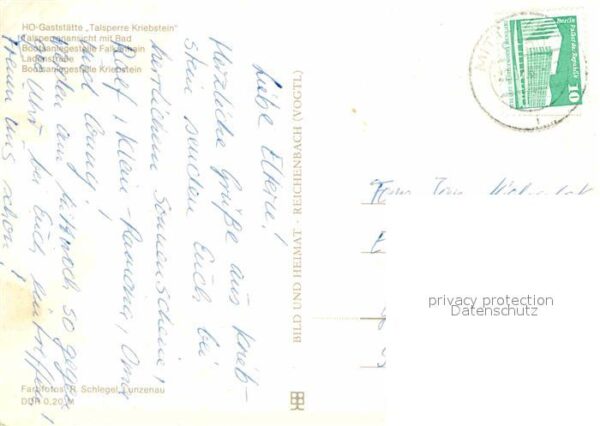 HO-Gaststätte „Talsperre Kriebstein"
Talsperrenansicht mit Bad
Bootsanlegestelle Falkenhain
Ladenstraße
Bootsanlegestelle Kriebstein
Liebe Eltern!
Herzliche Grüße aus Krieb-
stein senden Euch bei
herrlichem Sonnenschein!
Ralf, Klein-Ramona, Oma
und Conny!
Werden am Mittwoch so gegen
Uhr bei Euch eintreffen!
Freuen uns schon!
Farbfotos: R. Schlegel, Lunzenau
DDR 0,20 M
BILD UND HEIMAT REICHENBACH (VOGTL.)
Berlin
Palast der Republik
10
privacy protection
Datenschutz